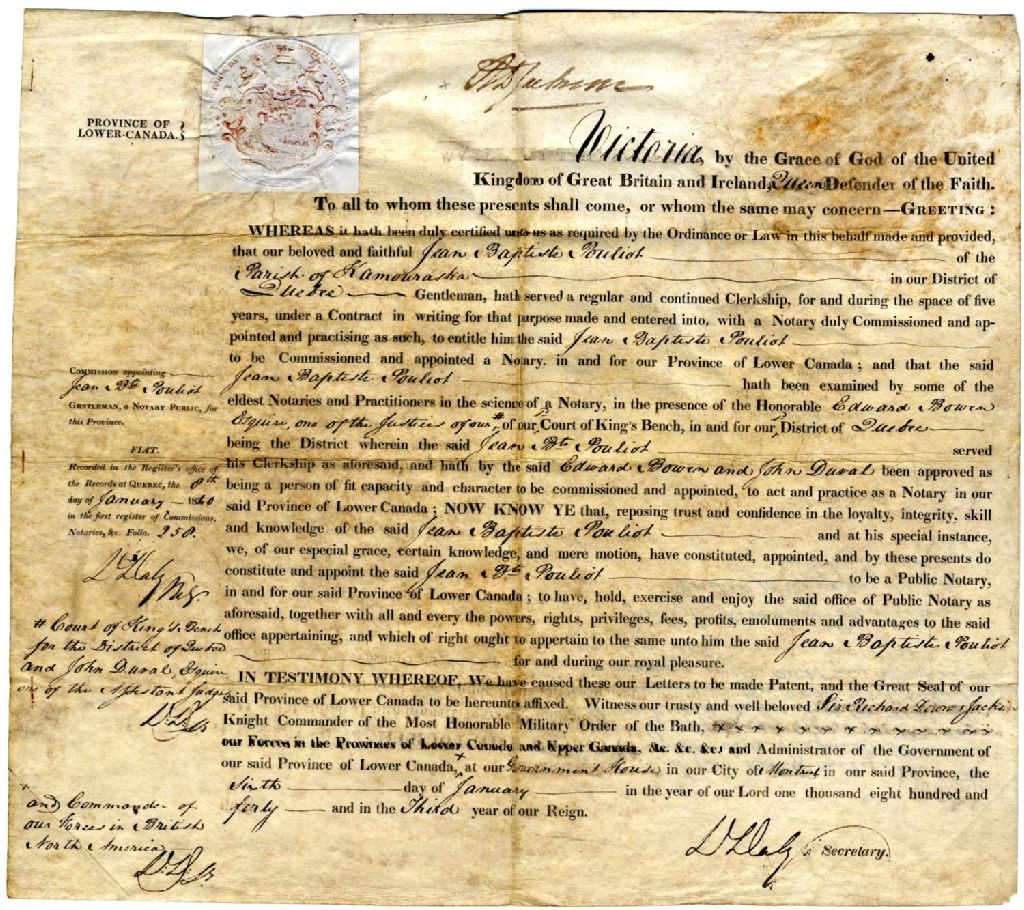 PROVINCE OF
LOWER-CANADA.
Victoria, by the Grace of God of the United
Kingdom of Great Britain and Ireland, Queen Defender of the Faith.
To all to whom these presents shall come, or whom the same may concern—GREETING:
WHEREAS it hath been duly certified unto us as required by the Ordinance or Law in this behalf made and provided,
that our beloved and faithful Jean Baptiste Pouliot of the
Parish of Kamouraska in our District of
Quebec Gentleman, hath served a regular and continued Clerkship, for and during the space of five
years, under a Contract in writing for that purpose made and entered into, with a Notary duly Commissioned and ap-
pointed and practising as such, to entitle him the said Jean Baptiste Pouliot
to be Commissioned and appointed a Notary. in and for our Province of Lower Canada; and that the said
Jean Baptiste Pouliot hath been examined by some of the
eldest Notaries and Practitioners in the science of a Notary, in the presence of the Honorable Edward Bowen
Esquire, one of the Justices of our # of our Court of King's Bench, in and for our District of Quebec
being the District wherein the said Jean Bte Pouliot served
his Clerkship as aforesaid, and hath by the said Edward Bowen and John Duval been approved as
being a person of fit capacity and character to be commissioned and appointed, to act and practice as a Notary in our
said Province of Lower Canada; NOW KNOW YE that, reposing trust and confidence in the loyalty, integrity, skill
and knowledge of the said Jean Baptiste Pouliot and at his special instance,
we, of our especial grace, certain knowledge, and mere motion, have constituted, appointed, and by these presents do
constitute and appoint the said Jean Bte Pouliot to be a Public Notary,
in and for our said Province of Lower Canada; to have, hold, exercise and enjoy the said office of Public Notary as
aforesaid, together with all and every the powers, rights, privileges, fees, profits, emoluments and advantages to the said
office appertaining, and which of right ought to appertain to the same unto him the said Jean Baptiste Pouliot
for and during our royal pleasure.
IN TESTIMONY WHEREOF, We have caused these our Letters to be made Patent, and the Great Seal of our
said Province of Lower Canada to be hereunto affixed. Witness our trusty and well beloved Sir Richard Downes Jackson
Knight Commander of the Most Honorable Military Order of the Bath, x x x x x x x x x x x x x x
our Forces in the Provinces of Lower Canada and Upper Canada, &c. &c. &c. and Administrator of the Government of
our said Province of Lower Canada, + at our Government House in our City of Montreal in our said Province, the
sixth day of January in the year of our Lord one thousand eight hundred and
forty and in the Third year of our Reign.
D Daly Secretary.
COMMISSION appointing
Jean Bte Pouliot
GENTLEMAN, a NOTARY PUBLIC, for
this Province.
FIAT.
Recorded in the Register's office of
the Records at QUEBEC, the 8th
day of January 1840
in the first register of Commissions,
Notaries, &c. Folio. 258.
D Daly Reg.
# Court of King's Bench
for the District of Quebec
and John Duval, Esquire
one of the Assistant Judges
and Commander of
our Forces in British
North America